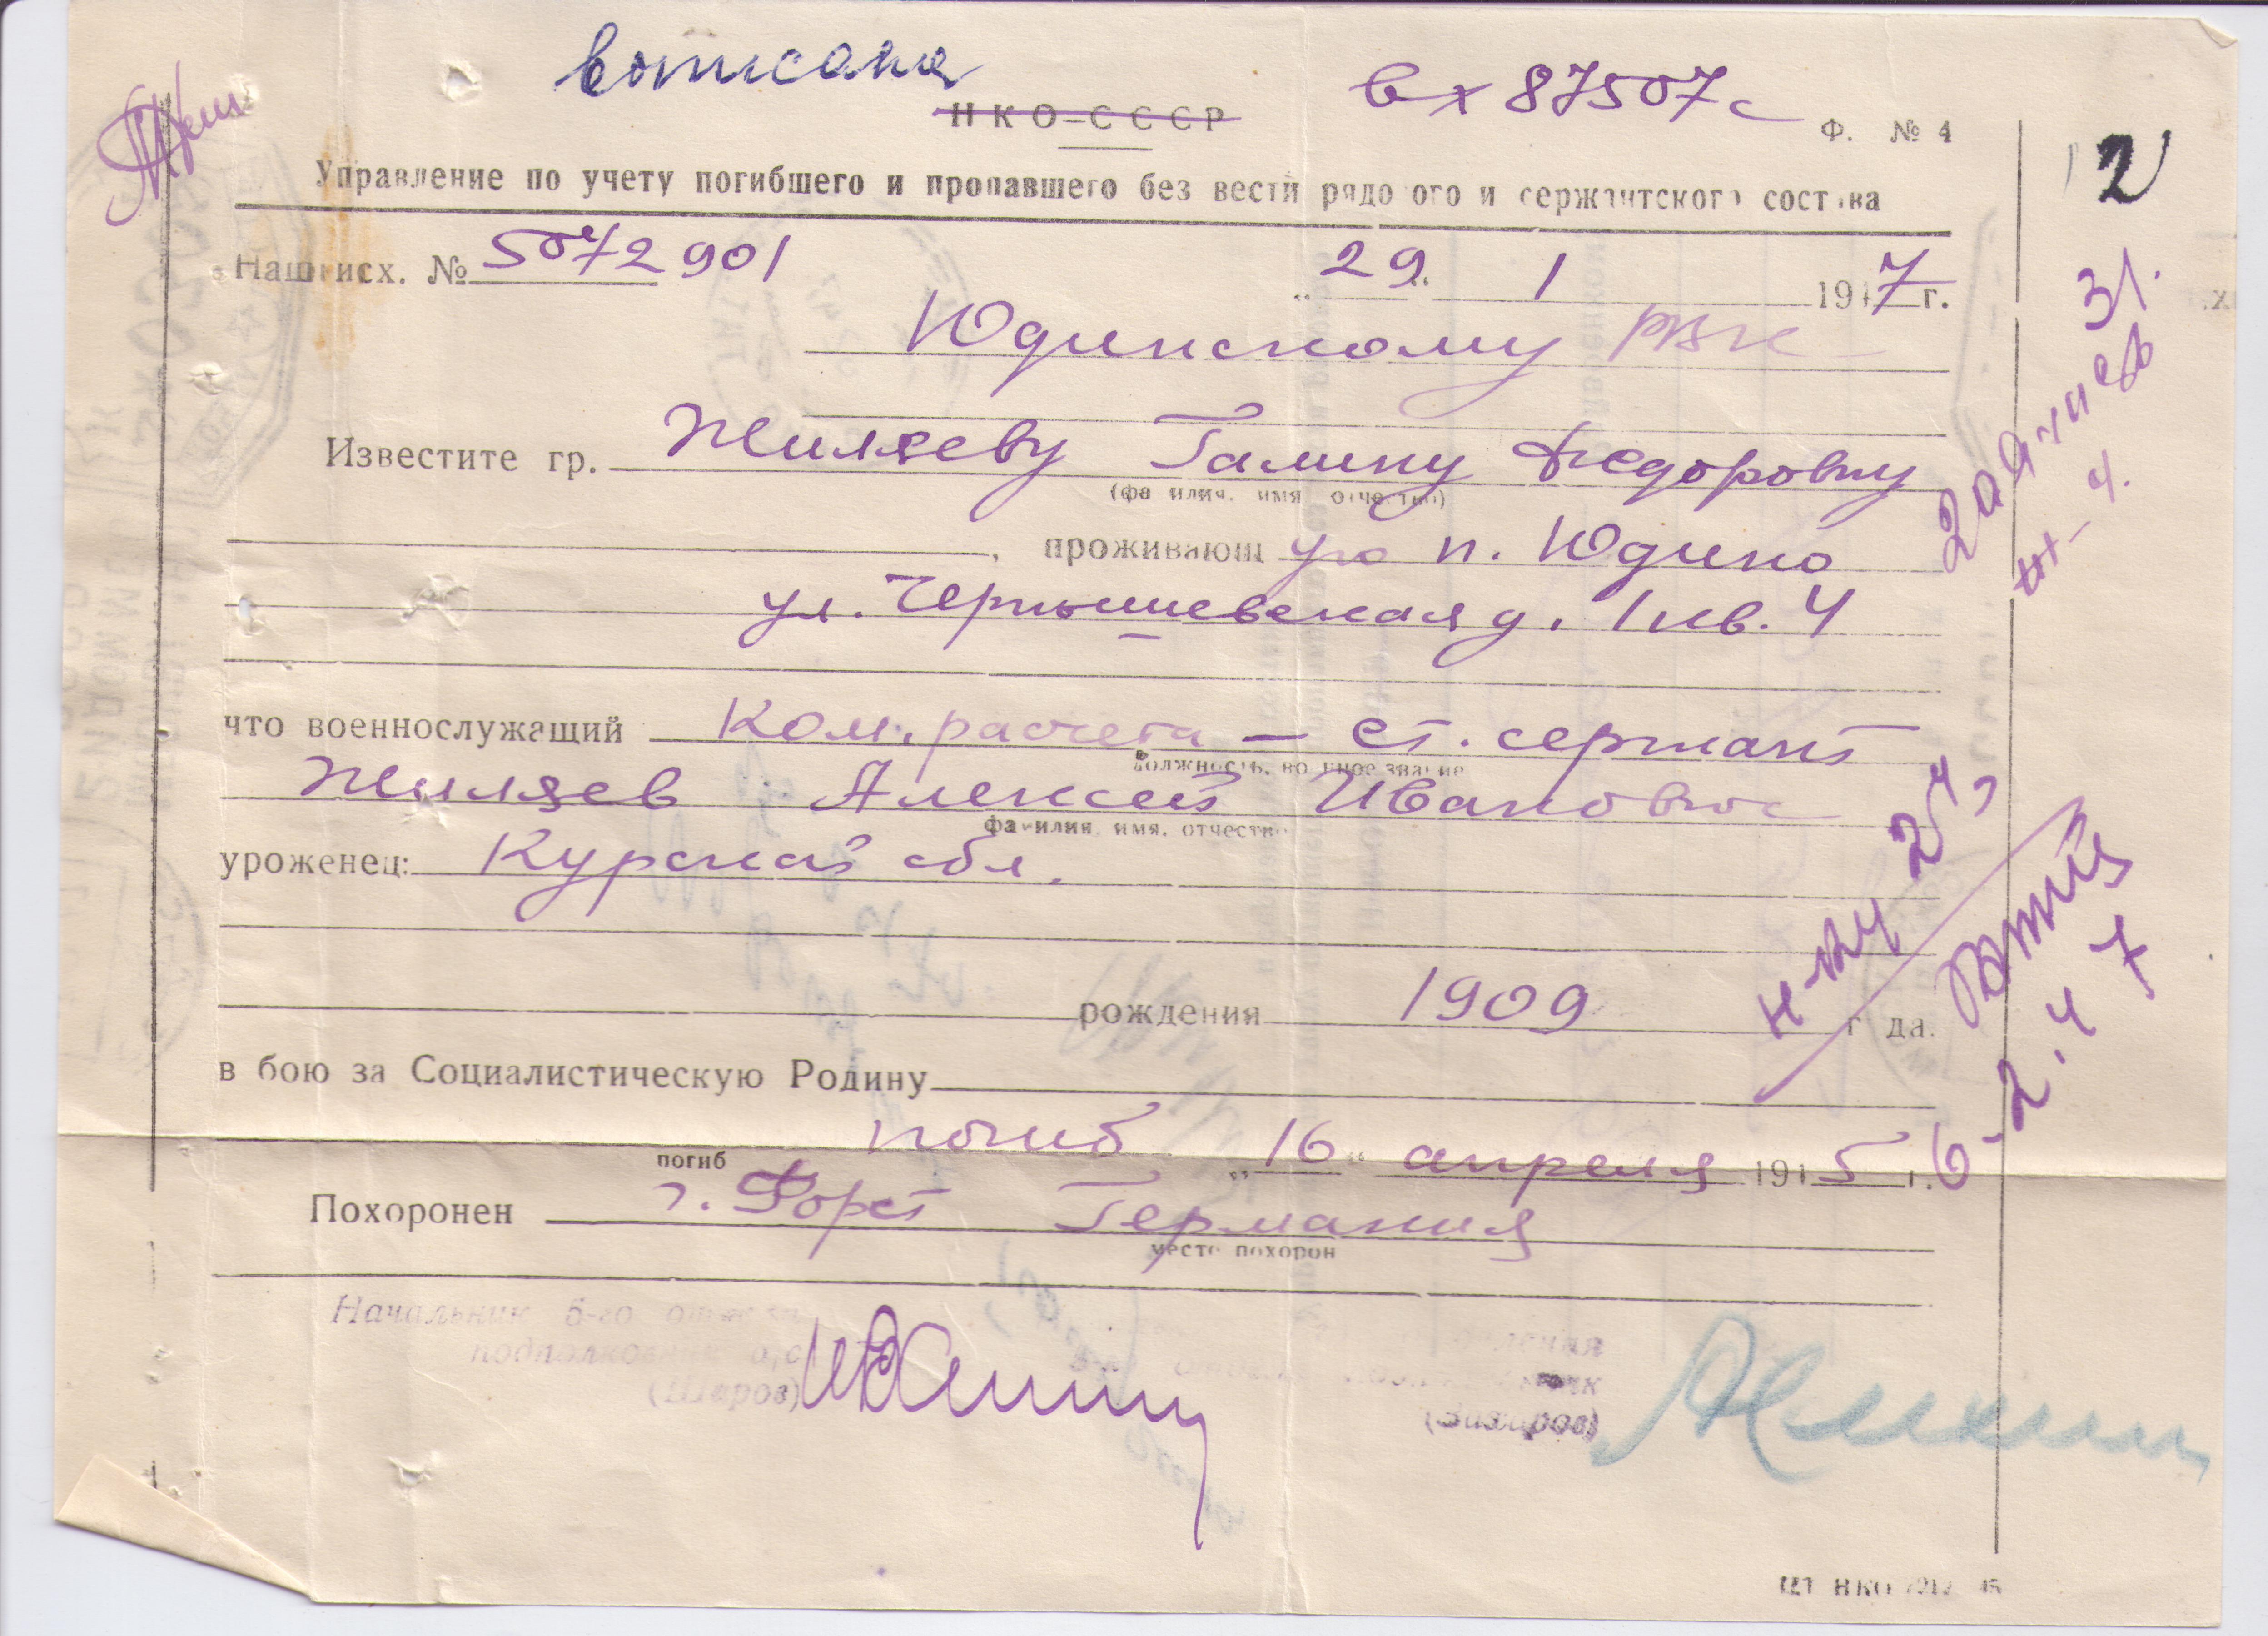 вписана
вх 87507с
НКО-СССР
Ф. № 4
2
Управление по учету погибшего и пропавшего без вести рядового и сержантского состава
Наш исх. № 5072901
„29“ 1 1947 г.
31.
Юдинскому РВК
Известите гр. Жиляеву Галину Федоровну
(фамилия, имя, отчество)
, проживающ ую п. Юдино
ул. Чернышевская д. 1 кв. 4
что военнослужащий Ком. расчета – ст. сержант
должность, военное звание
Жиляев Алексей Иванович
фамилия, имя, отчество
уроженец: Курской обл.
н-ку 2 ч,
рождения 1909 года.
6-2.47
в бою за Социалистическую Родину
погиб „16“ апреля 1945 г.
погиб
Похоронен г. Форст Германия
место похорон
Начальник 5-го отдела
подполковник а/с
(Шаров)
5-го отдела
(Захаров)
НКО